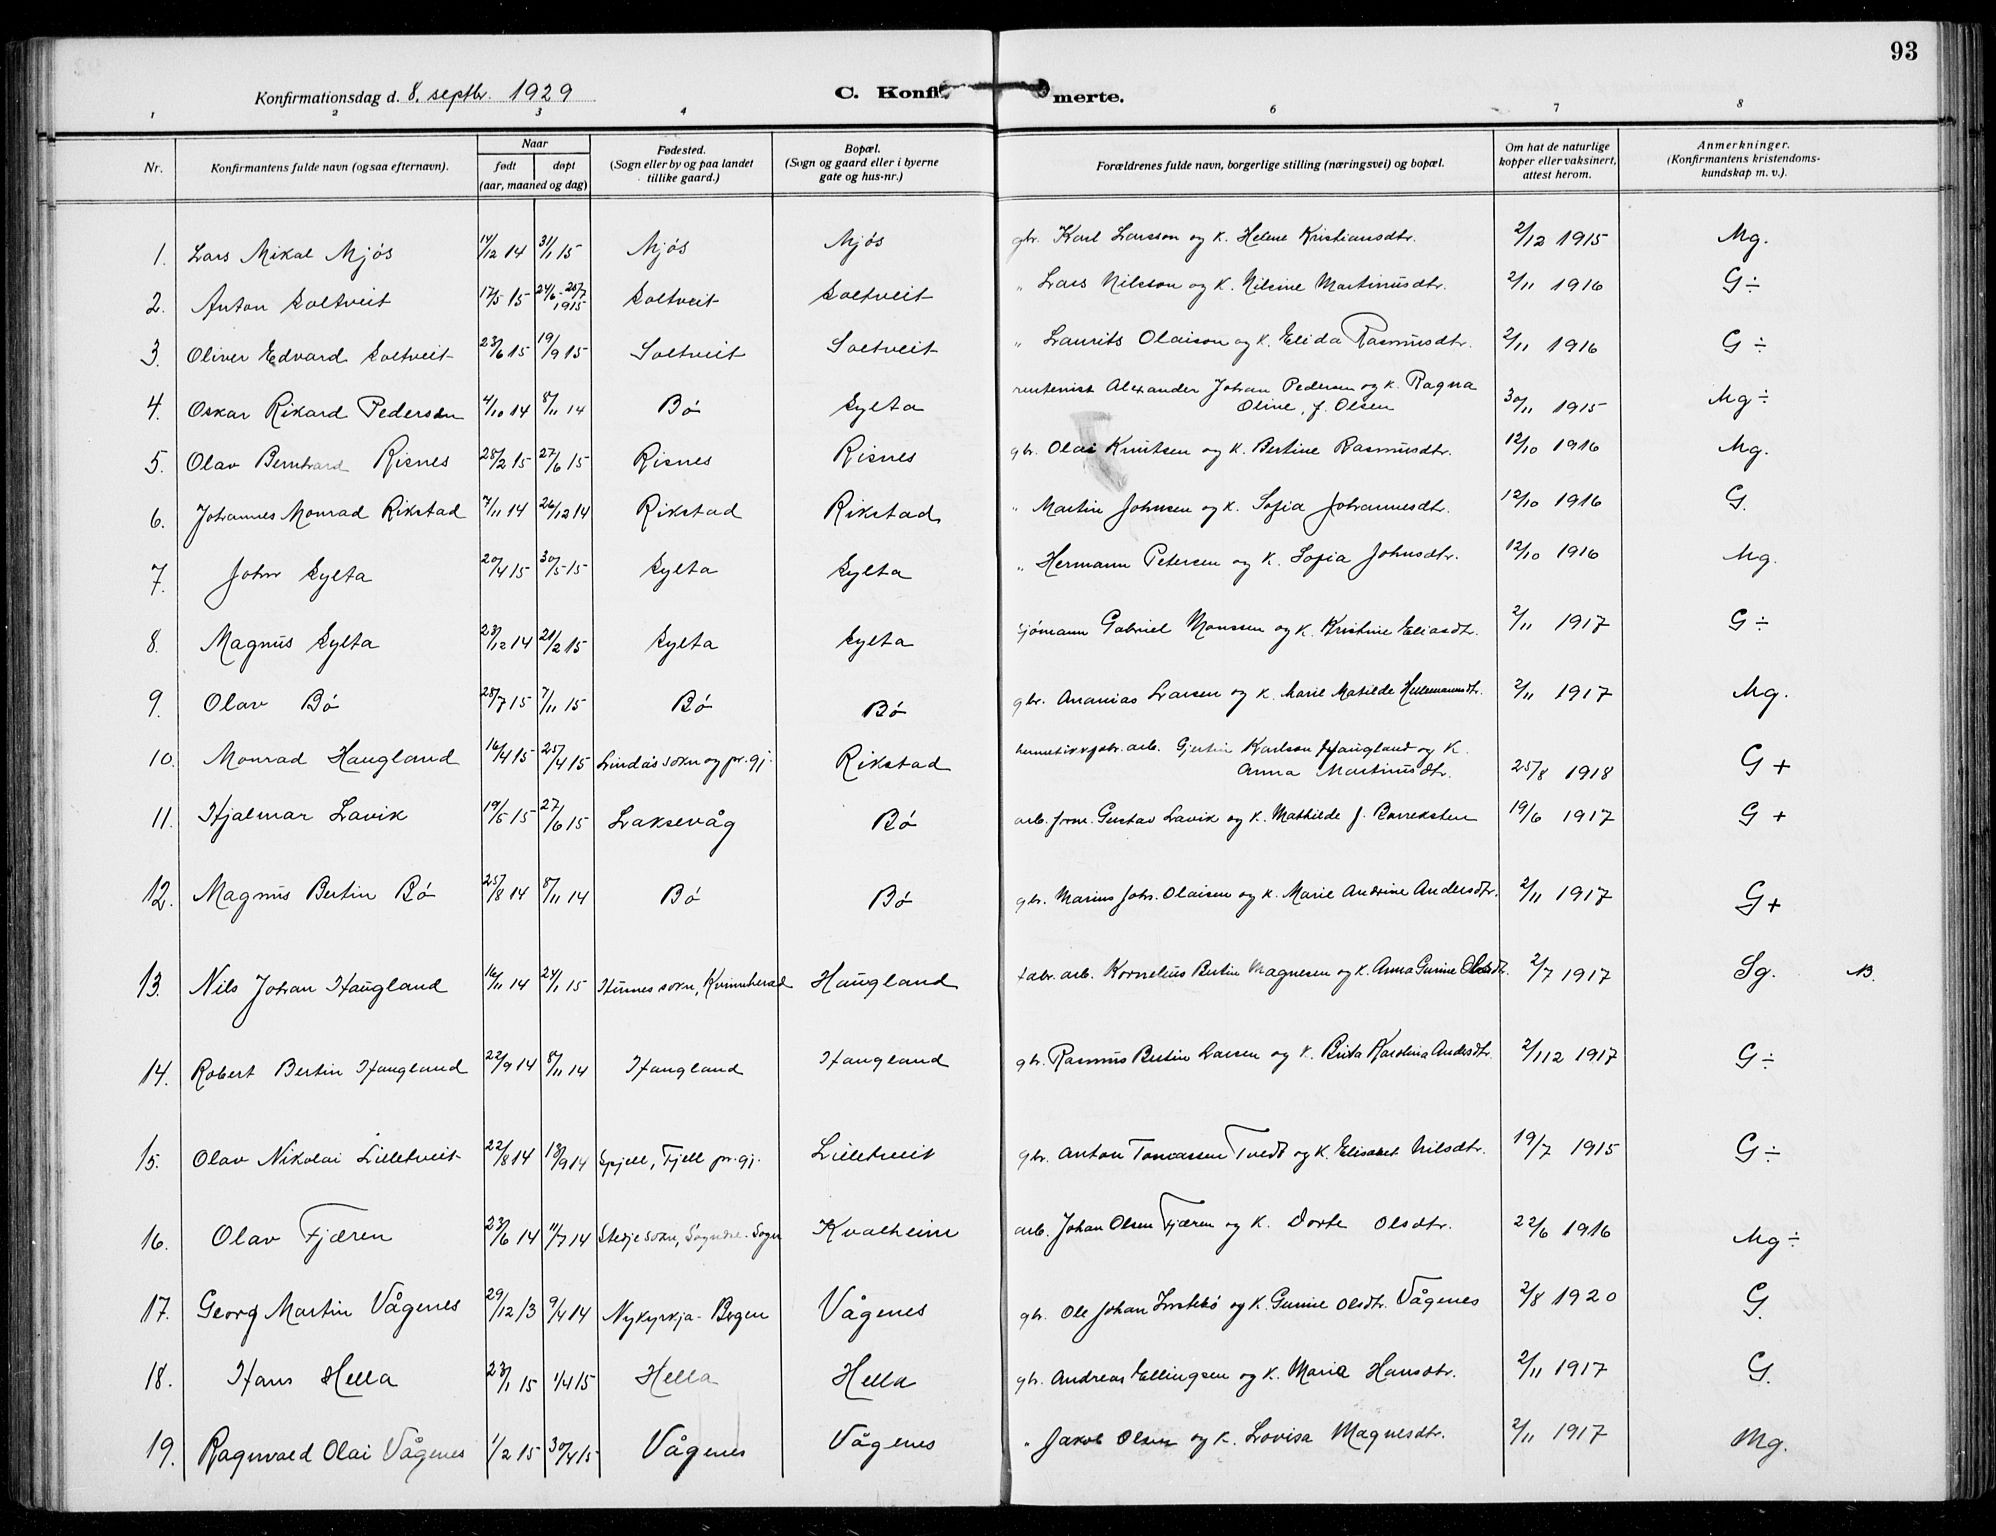 93
Konfirmationsdag d. 8. septbr. 1929 C. Konfi merte.
1 2 3 4 6 7 8
Nr. Konfirmantens fulde navn (ogsaa efternavn). Naar født døpt (aar, maaned og dag) Fødested. (Sogn eller by og paa landet tillike gaard.) Bopæl. (Sogn og gaard eller i byerne gate og hus-nr.) Forældrenes fulde navn, borgerlige stilling (næringsvei) og bopæl. Om hat de naturlige kopper eller vaksinert, attest herom. Anmerkninger. (Konfirmantens kristendoms-kundskap m. v.).
1. Lars Mikal Mjøs 14/12 14 31/1 15 Mjøs Mjøs gbr. Karl Larsson og k. Helene Kristiansdtr. 2/12 1915 Mg.
2. Anton Soltveit 17/5 15 24/6-25/7 1915 Soltveit Soltveit " Lars Nilsson og k. Nilsine Martinusdtr. 2/11 1916 G ÷
3. Oliver Edvard Soltveit 23/6 15 19/9 15 Soltveit Soltveit " Laurits Olaison og k. Elida Rasmusdtr. 2/11 1916 G ÷
4. Oskar Rikard Pedersen 4/10 14 8/11 14 Bø Sylta rentenist Alexander Johan Pedersen og k. Ragna
Oline, f. Olsen 30/11 1915 Mg ÷
5. Olav Bernhard Risnes 28/2 15 27/6 15 Risnes Risnes gbr. Olai Knutsen og k. Bertine Rasmusdtr. 12/10 1916 Mg.
6. Johannes Monrad Rikstad 7/11 14 26/12 14 Rikstad Rikstad " Martin Johnsen og k. Sofia Johannesdtr. 12/10 1916 G.
7. John Sylta 20/4 15 30/5 15 Sylta Sylta " Hermann Petersen og k. Sofia Johnsdtr. 12/10 1916 Mg.
8. Magnus Sylta 23/12 14 21/2 15 Sylta Sylta sjømann Gabriel Monssen og k. Kristine Eliasdtr. 2/11 1917 G ÷
9. Olav Bø 28/7 15 7/11 15 Bø Bø gbr. Ananias Larsen og k. Marie Matilde Hellemannsdtr. 2/11 1917 Mg.
10. Monrad Haugland 16/4 15 25/4 15 Lindås sokn og pr.gj. Rikstad hermetikkfabr. arb. Gjertin Karlson Haugland og k.
Anna Martinusdtr. 25/8 1918 G +
11. Hjalmar Lavik 19/5 15 27/6 15 Laksevåg Bø arb. form. Gustav Lavik og k. Mathilde f. Barreksten 19/6 1917 G +
12. Magnus Bertin Bø 25/8 14 8/11 14 Bø Bø gbr. Marius Johs. Olaisen og k. Marie Andrine Andersdtr. 2/11 1917 G +
13. Nils Johan Haugland 16/11 14 24/1 15 Husnes sokn, Kvinnherad Haugland fabr. arb. Kornelius Bertin Magnesen og k. Anna Gurine Olsdtr. 2/7 1917 Sg. N3.
14. Robert Bertin Haugland 22/9 14 8/11 14 Haugland Haugland gbr. Rasmus Bertin Larsen og k. Brita Karolina Andersdtr. 2/112 1917 G ÷
15. Olav Nikolai Lilletveit 22/8 14 13/9 14 Spjell, Fjell pr.gj. Lilletveit gbr. Anton Tomassen Tvedt og k. Elisabet Nilsdtr. 19/7 1915 G ÷
16. Olav Fjæren 23/6 14 11/7 14 Stedje sokn, Sogndal. Sogn Kvalheim arb. Johan Olsen Fjæren og k. Dorte Olsdtr. 22/6 1916 Mg ÷
17. Georg Martin Vågenes 29/12 13 9/4 14 Nykyrkja - Bergen Vågenes gbr. Ole Johan og k. Gurine Olsdtr. Vågenes 2/8 1920 G.
18. Hans Hella 23/1 15 1/4 15 Hella Hella gbr. Andreas Ellingsen og k. Maria Hansdtr. 2/11 1917 G.
19. Ragnvald Olai Vågenes 1/2 15 30/4 15 Vågenes Vågenes " Jakob Olsen og k. Lovisa Magnesdtr. 2/11 1917 Mg.